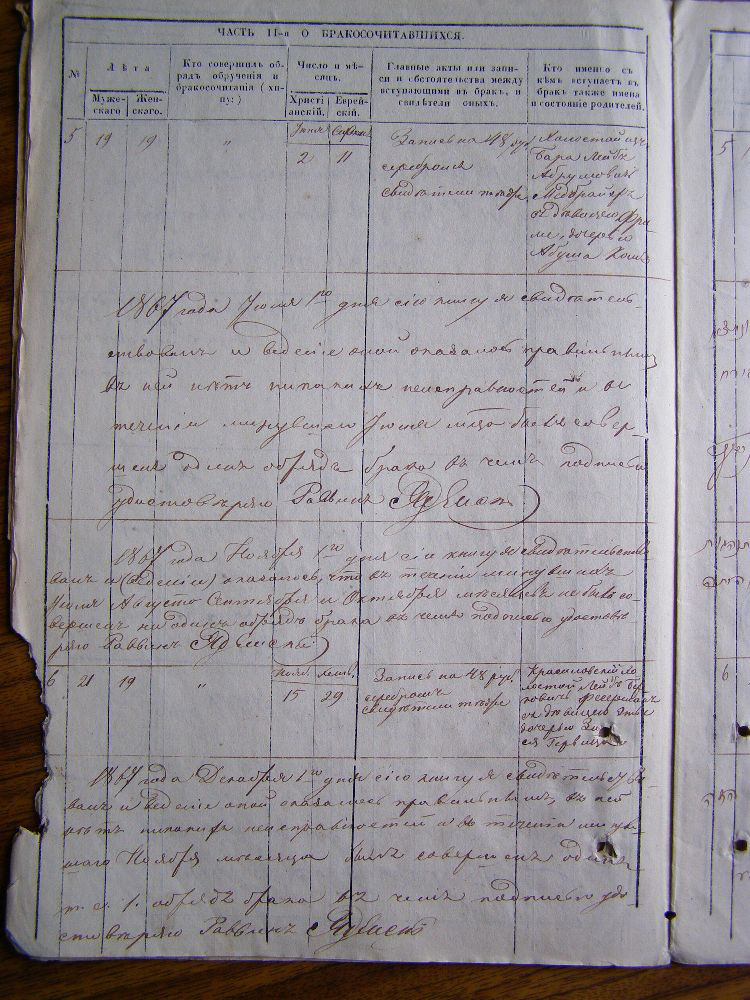 ЧАСТЬ II-я О БРАКОСОЧИТАВШИХСЯ.
№
Лѣта
Муже-
скаго
Жен-
скаго.
Кто совершилъ об-
рядъ обрученія и
бракосочитанія (хи-
пу:)
Число и мѣ-
сяцъ.
Христі-
анскій.
Еврей-
скій.
Главные акты или запи-
си и обстоятельства между
вступающими въ бракъ, и
свидѣтели оныхъ.
Кто именно съ
кѣмъ вступаетъ въ
бракъ также имена
и состояніе родителей.
5
19
19
„
Іюня
2
11
Запись на 48 руб.
серебромъ
свидѣтели
Холостой изъ
Бара Лейба
съ дѣвицею
дочерью
1867 года Іюля 1го дня сію книгу я свидѣтель-
ствовалъ и веденіе оной оказалось правильнымъ
въ ней нѣтъ никакихъ неисправностей и въ
теченіи минувшаго Іюня мѣсо былъ совер-
шенъ одинъ обрядъ брака въ чемъ подписью
удостовѣряю Раввинъ
1867 года Ноября 1го дня сію книгу я свидѣтельство-
валъ и (веденіи) оказалось, что въ теченіи минувшихъ
Іюля Августо Сентября и Октября мѣсяцевъ не былъ со-
вершенъ ни одинъ обрядъ брака въ чемъ подписью удостовѣ-
ряю Раввинъ
6
21
19
„
Нояб.
15
29
Запись на 48 руб.
серебромъ
свидѣтели
Красиловскій хо-
лостой Лейбъ Бер-
ковичъ
съ дѣвицею
дочерью
1867 года Декабря 1го дня сію книгу я свидѣтельство-
валъ и веденіе оной оказалось правильнымъ, въ ней
нѣтъ никакихъ неисправностей и въ теченіи минув-
шаго Ноября мѣсяца былъ совершенъ одинъ
т. е. 1. обрядъ брака въ чемъ подписью удо-
стовѣряю Раввинъ
5
6